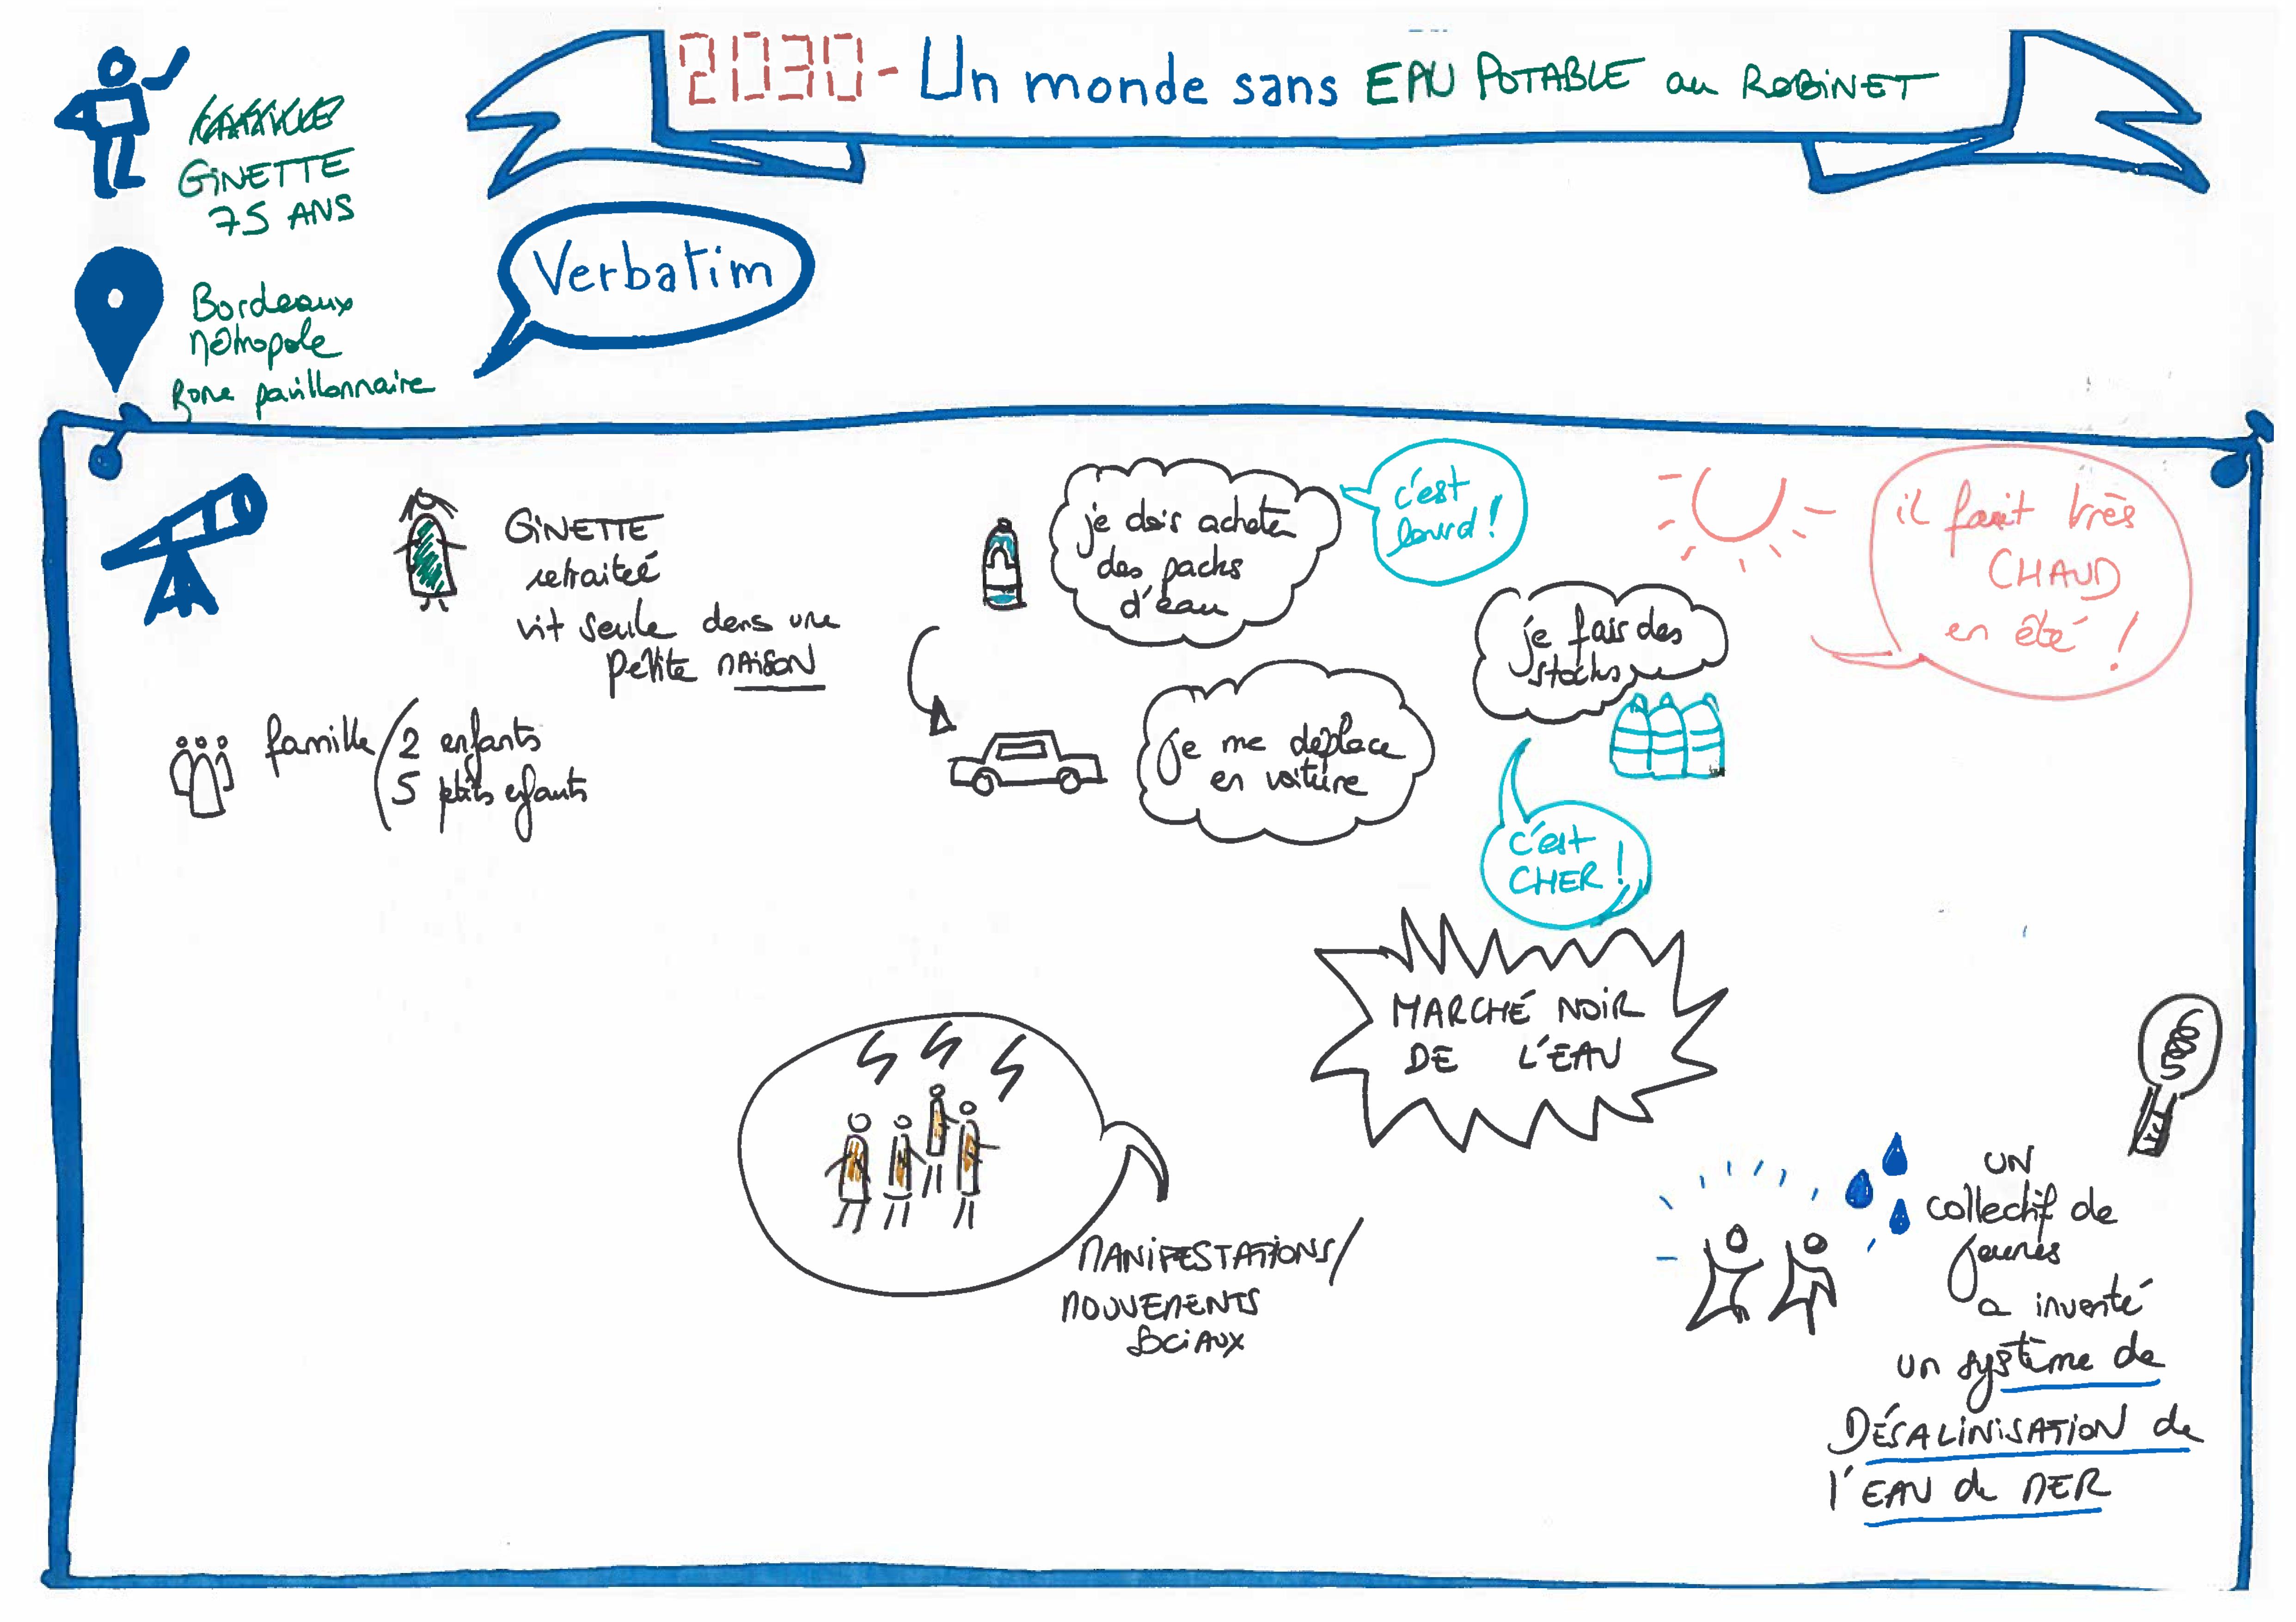 2030 - Un monde sans EAU POTABLE au ROBINET
GINETTE
75 ANS
Bordeaux
Métropole
Zone pavillonnaire
Verbatim
GINETTE
retraitée
vit seule dans une
petite MAISON
famille / 2 enfants
5 petits enfants
je dois acheter
des packs
d'eau
c'est
lourd !
il fait très
CHAUD
en été !
je fais des
stocks
je me déplace
en voiture
c'est
CHER !
MARCHÉ NOIR
DE L'EAU
MANIFESTATIONS /
MOUVEMENTS
SOCIAUX
UN
collectif de
jeunes
a inventé
un système de
DÉSALINISATION de
l'EAU de MER